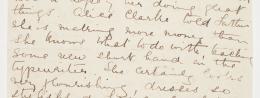 her doing great
things. Alice Clarke told father
she's making more money than
she knows what to do with, teaching
some new short hand on the
typewriter. She certainly looks
flourishing, dresses so